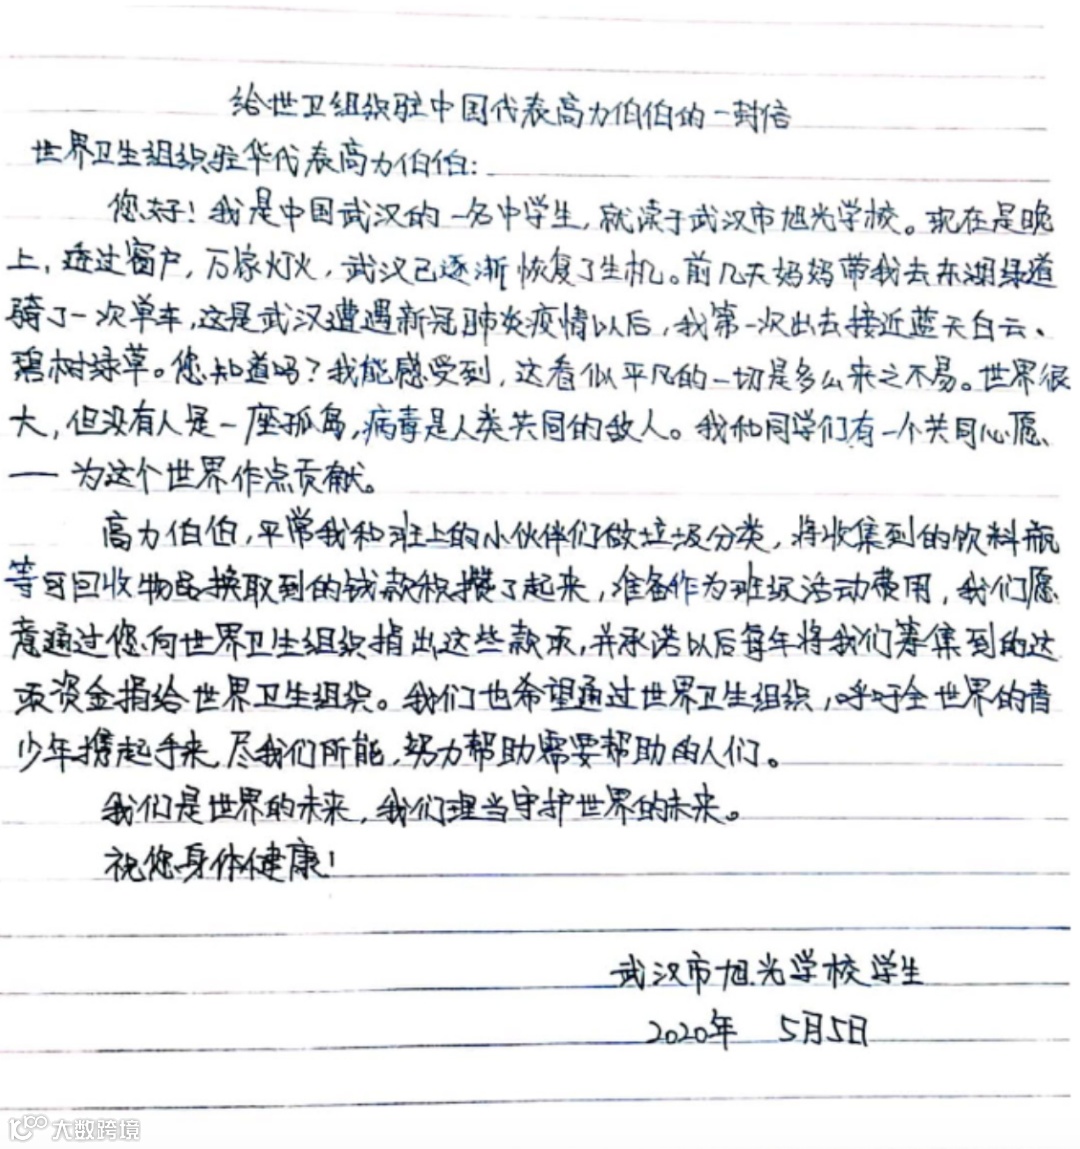 给世卫组织驻中国代表高力伯伯的一封信
世界卫生组织驻华代表高力伯伯:
您好!我是中国武汉的一名中学生,就读于武汉市旭光学校。现在是晚
上,透过窗户,万家灯火,武汉已逐渐恢复了生机。前几天妈妈带我去东湖绿道
骑了一次单车,这是武汉遭遇新冠肺炎疫情以后,我第一次出去接近蓝天白云、
碧树绿草。您知道吗?我能感受到,这看似平凡的一切是多么来之不易。世界很
大,但没有人是一座孤岛,病毒是人类共同的敌人。我和同学们有一个共同心愿、
——为这个世界作点贡献。
高力伯伯,平常我和班上的小伙伴们做垃圾分类,将收集到的饮料瓶
等可回收物品换取到的钱款积攒了起来,准备作为班级活动费用,我们愿
意通过您向世界卫生组织捐出这些款项,并承诺以后每年将我们筹集到的这
项资金捐给世界卫生组织。我们也希望通过世界卫生组织,呼吁全世界的青
少年携起手来,尽我们所能,努力帮助需要帮助的人们。
我们是世界的未来,我们理当守护世界的未来。
祝您身体健康!
武汉市旭光学校学生
2020年 5月5日
大数跨境